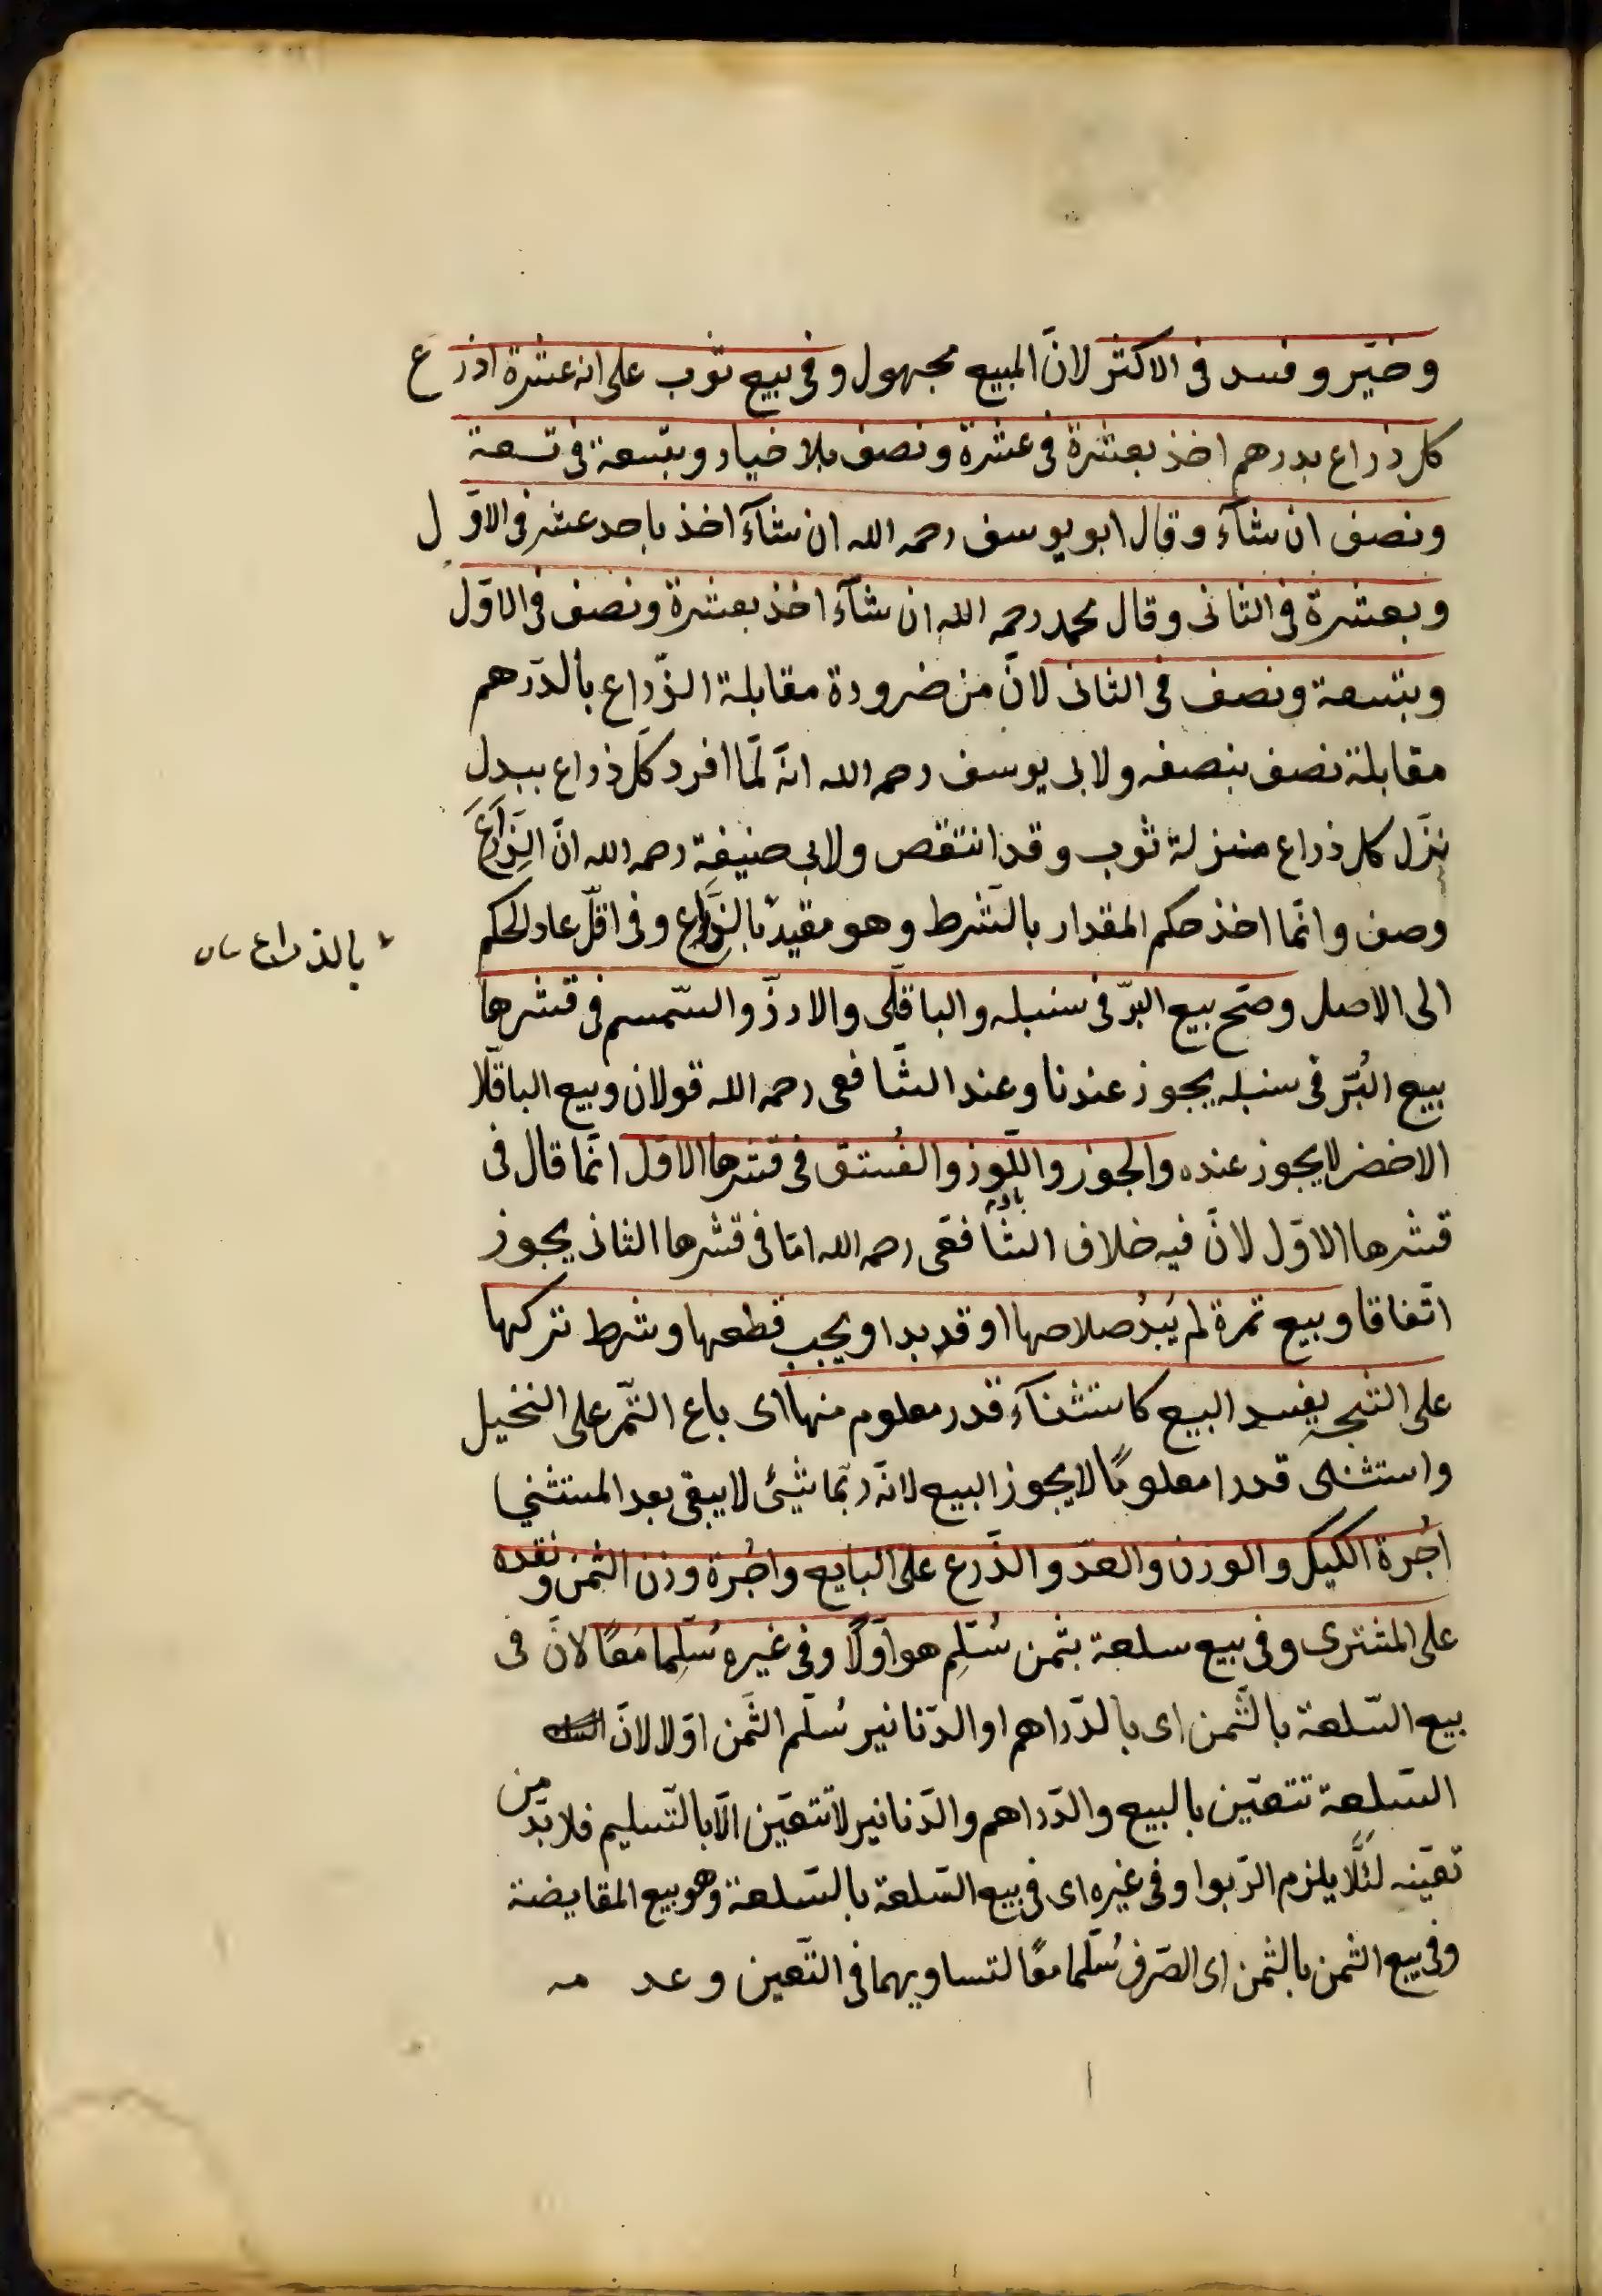 وخيّر وفسد فى الاكثر لانّ المبيع مجهول وفى بيع ثوب على انه عشرة اذرع
كل ذراع بدرهم اخذ بعشرة فى عشرة ونصف بلا خيار وبتسعة فى تسعة
ونصف ان شآء وقال ابو يوسف رحمه الله ان شآء اخذ باحد عشر فى الاوّل
وبعشرة فى الثانى وقال محمد رحمه الله ان شآء اخذ بعشرة ونصف فى الاوّل
وبتسعة ونصف فى الثانى لانّ من ضرورة مقابلة الذّراع بالدّرهم
مقابلة نصف بنصفه ولابى يوسف رحمه الله انّه لمّا افرد كلّ ذراع ببدل
نزّل كل ذراع منزلة ثوب وقد انتقص ولابى حنيفة رحمه الله انّ الذّراعَ
وصف وانّما اخذ حكم المقدار بالشّرط وهو مقيّد بالذّراع وفى اقلّ عاد الحكم
بالذراع
الى الاصل وصحّ بيع البرّ فى سنبله والباقلّى والارزّ والسّمسم فى قشرها
بيع البُرّ فى سنبله يجوز عندنا وعند الشّافعى رحمه الله قولان وبيع الباقلّا
الاخضر لا يجوز عنده والجوز واللّوز والفُستق فى قشرها الاوّل انّما قال فى
قشرها الاوّل لانّ فيه خلاف الشّافعى رحمه الله امّا فى قشرها الثانى يجوز
اتّفاقا وبيع ثمرة لم يَبدُ صلاحها او قد بدا ويجب قطعها وشرط تركها
على الشّجر يفسد البيع كاستثنآء قدر معلوم منها اى باع الثّمر على النخيل
واستثنى قدرا معلومًا لا يجوز البيع لانّه ربّما شيئ لا يبقى بعد المستثنى
اجُرة الكيل والوزن والعدّ والذّرع على البايع واجُرة وزن الثّمن ونقده
على المشترى وفى بيع سلعة بثمن سُلّم هو اوّلاً وفى غيره سُلّما معًا لانّ فى
بيع السّلعة بالثّمن اى بالدّراهم او الدّنانير سُلّم الثّمن اوّلا لانّ
السّلعة تتعيّن بالبيع والدّراهم والدّنانير لا تتعيّن الّا بالتّسليم فلا بدّ من
تعيّنه لئلّا يلزم الرّبوا وفى غيره اى فى بيع السّلعة بالسّلعة وهو بيع المقايضة
وفى بيع الثمن بالثمن اى الصّرف سُلّما معًا لتساويهما فى التّعين وعدمه